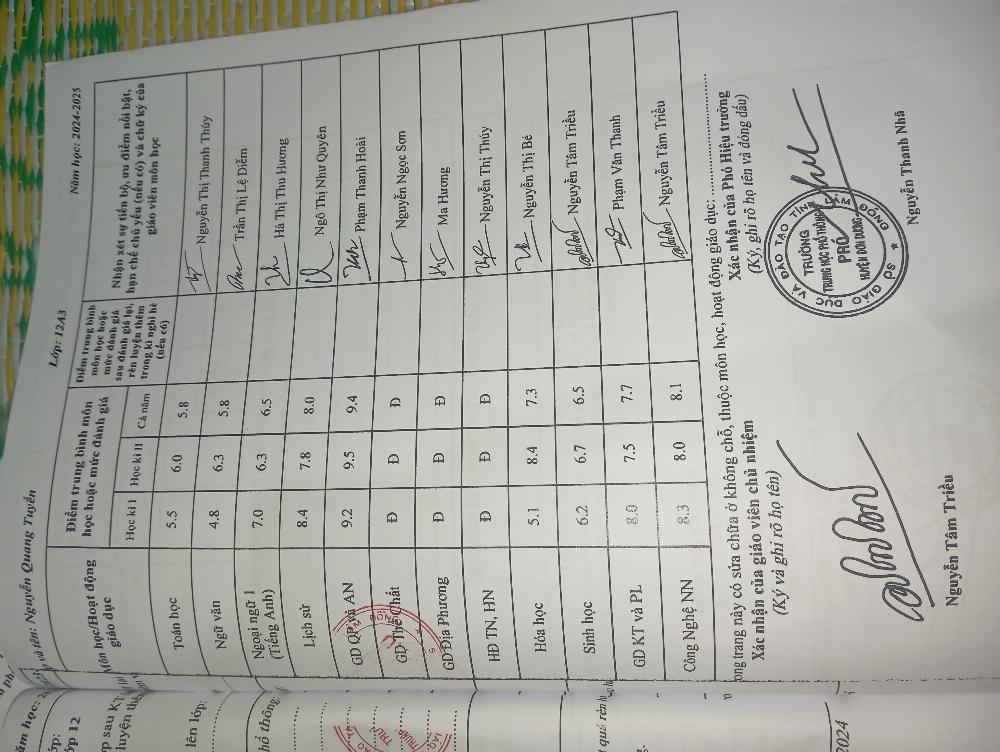 Họ và tên: Nguyễn Quang Tuyền Lớp: 12A3 Năm học: 2024-2025
Môn học/Hoạt động giáo dục
Điểm trung bình môn học hoặc mức đánh giá
Học kì I Học kì II Cả năm
Điểm trung bình môn học hoặc mức đánh giá sau đánh giá lại, rèn luyện thêm trong kì nghỉ hè (nếu có)
Nhận xét sự tiến bộ, ưu điểm nổi bật, hạn chế chủ yếu (nếu có) và chữ ký của giáo viên môn học
Toán học 5.5 6.0 5.8 Nguyễn Thị Thanh Thúy
Ngữ văn 4.8 6.3 5.8 Trần Thị Lệ Diễm
Ngoại ngữ 1 (Tiếng Anh) 7.0 6.3 6.5 Hà Thị Thu Hương
Lịch sử 8.4 7.8 8.0 Ngô Thị Như Quyên
GD QP và AN 9.2 9.5 9.4 Phạm Thanh Hoài
GD Thể Chất Đ Đ Đ Nguyễn Ngọc Sơn
GD Địa Phương Đ Đ Đ Ma Hương
HĐ TN, HN Đ Đ Đ Nguyễn Thị Thúy
Hóa học 5.1 8.4 7.3 Nguyễn Thị Bé
Sinh học 6.2 6.7 6.5 Nguyễn Tâm Triều
GD KT và PL 8.0 7.5 7.7 Phạm Văn Thanh
Công Nghệ NN 8.3 8.0 8.1 Nguyễn Tâm Triều
trang này có sửa chữa ở không chỗ, thuộc môn học, hoạt động giáo dục:
Xác nhận của giáo viên chủ nhiệm
(Ký và ghi rõ họ tên)
Nguyễn Tâm Triều
Xác nhận của Phó Hiệu trưởng
(Ký, ghi rõ họ tên và đóng dấu)
SỞ GIÁO DỤC VÀ ĐÀO TẠO TỈNH LÂM ĐỒNG
TRƯỜNG
TRUNG HỌC PHỔ THÔNG
PRÓ
HUYỆN ĐƠN DƯƠNG
Nguyễn Thanh Nhã